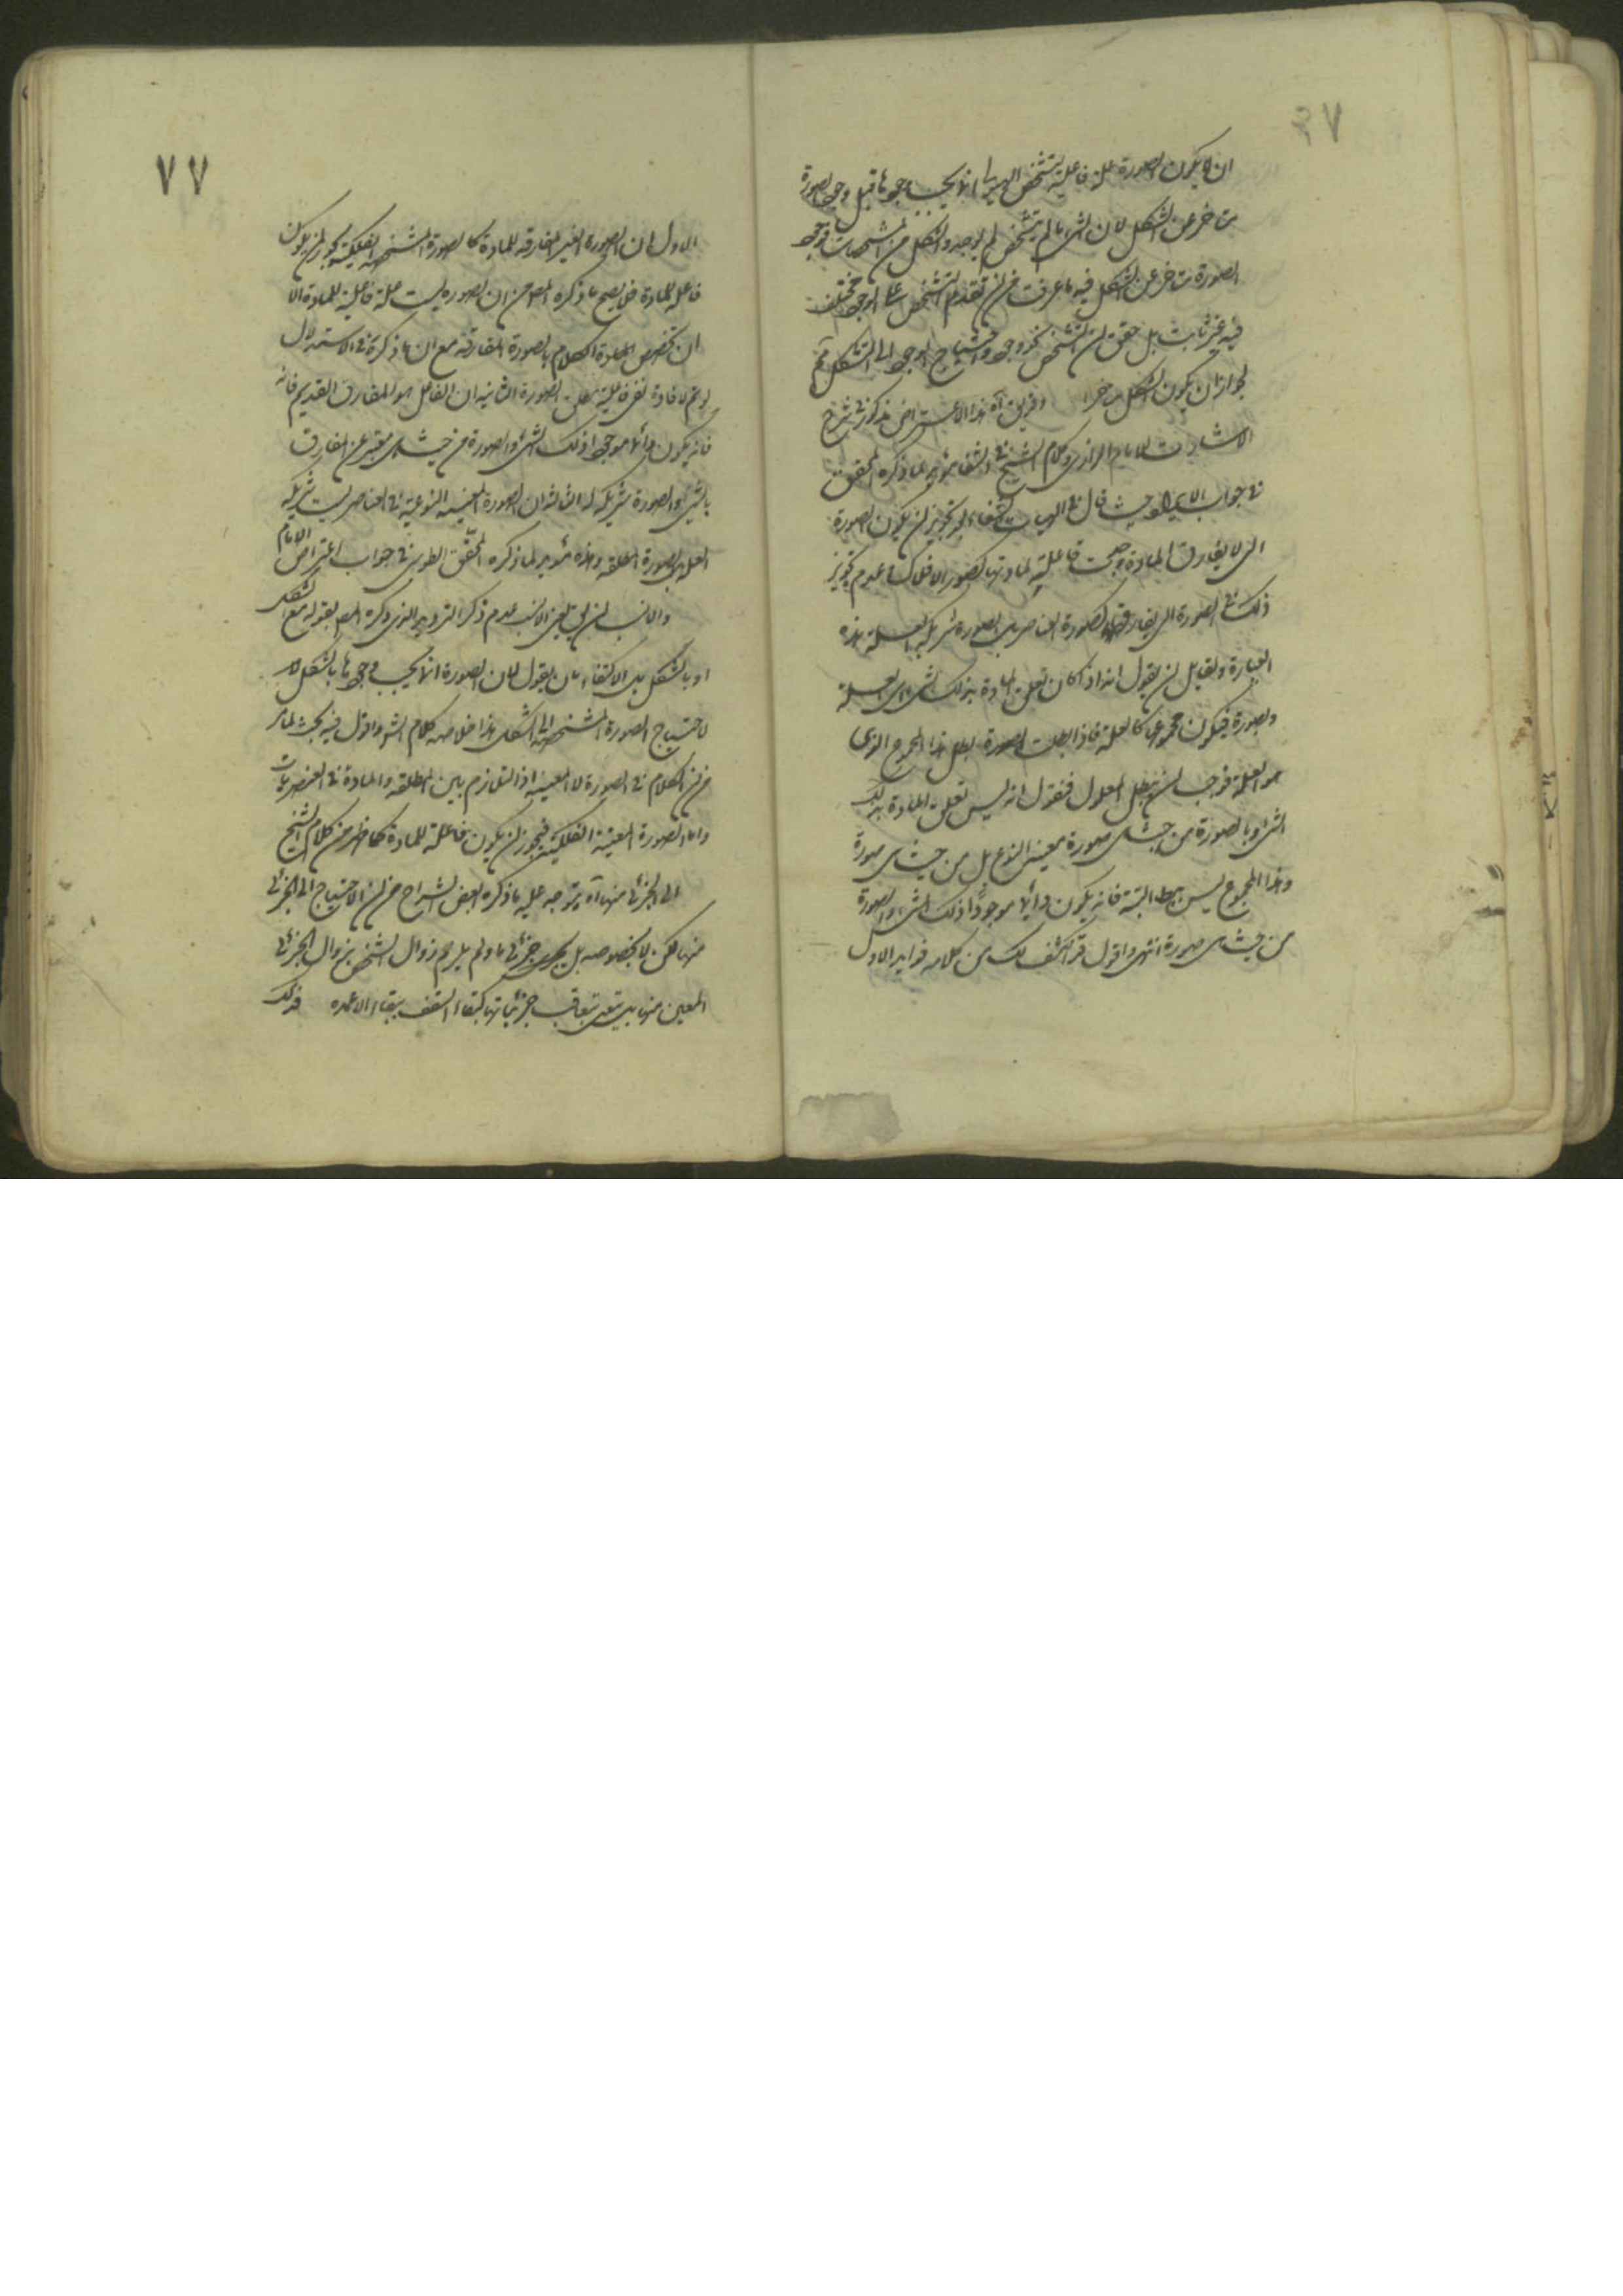 ان لا يكون الصورة علة فاعلية لتشخص الهيولى انما يجب وجودها قبل وجود الصورة
متأخر عن الشكل لان الشئ ما لم يتشخص لم يوجد والشكل من المشخصات فوجود
الصورة متأخر عن الشكل فيه ما عرفت من ان تقدم التشخص على الوجود مختلف
فيه غير ثابت بل حقق ان التشخص نحو وجود واحتياج الوجود الى التشكل
لجواز ان يكون الشكل هذا الاعتراض مذكور فى شرح
الاشارات للامام الرازى وكلام الشيخ فى الشفا مؤيد لما ذكره المحقق
فى جواب الايراد حيث قال فى الهيات الشفاء بعد تجويز ان يكون الصورة
التى لا يفارق المادة فاعلية لمادتها كصور الافلاك عدم تجويز
ذلك فى الصورة التى يفارقها كصورة العناصر بل الصورة شريكة العلة هذه
العبارة ولقايل ان يقول انه اذا كان تعلق المادة بذلك الشئ اى العلة
والصورة فيكون مجموعهما كالعلة فاذا بطلت الصورة بطل هذا المجموع الذى
هو العلة فوجب ان يبطل المعلول فنقول انه ليس تعلق المادة بذلك
الشئ وبالصورة من حيث هى صورة معينة النوع بل من حيث هى صورة
وهذا المجموع ليس يبطل البتة فانه يكون دائما موجودا ذلك الشئ والصورة
من حيث هى صورة انتهى واقول قد انكشف لك من كلامه فوايد الاول
٧٧
الاول ان الصورة الغير المفارقة للمادة كالصورة المشخصة الفلكية يجوز ان يكون
فاعلة للمادة فلا يصح ما ذكره المص من ان الصورة ليست علة فاعلية للمادة الا
ان تخصص المادة الكلام بالصورة المفارقة مع ان ما ذكره فى الاستدلال
لو تم لافادة نفى فاعلية مطلق الصورة الثانية ان الفاعل هو المفارق القديم فانه
فانه يكون دائما موجودا ذلك الشئ والصورة من حيث هى معبر عن المفارق
بالشئ والصورة شريكة له الثالث ان الصورة المعينة النوعية فى العناصر ليست شريكة
العلة بل الصورة المطلقة وهذه مؤيد لما ذكره المحقق الطوسى فى جواب اعتراض الامام
والانسب ان يق يعنى الانسب عدم ذكر الترديد الذى ذكره المص بقوله مع الشكل
او بالشكل بل الاكتفاء بان يقول لان الصورة انما يجب وجودها بالشكل
لاحتياج الصورة المشخصة الى الشكل هذا خلاصة كلام الش واقول فيه بحث لما مر
من ان الكلام فى الصورة لا المعينة اذ التلازم بين المطلقة والمادة فى العنصريات
واما الصورة المعينة الفلكية فيجوز ان يكون فاعلة للمادة كما ظهر من كلام الشيخ
الى الجزئى منها اه يتوجه عليه ما ذكره بعض الشراح من ان الاحتياج الى الجزئى
منها لكن لا بخصوصه بل جزئى ما ولم يلزم زوال الشخص بزوال الجزئى
المعين منها بل يبقى بتعاقب جزئياتها كبقاء السقف ببقاء الاعمدة فذلك